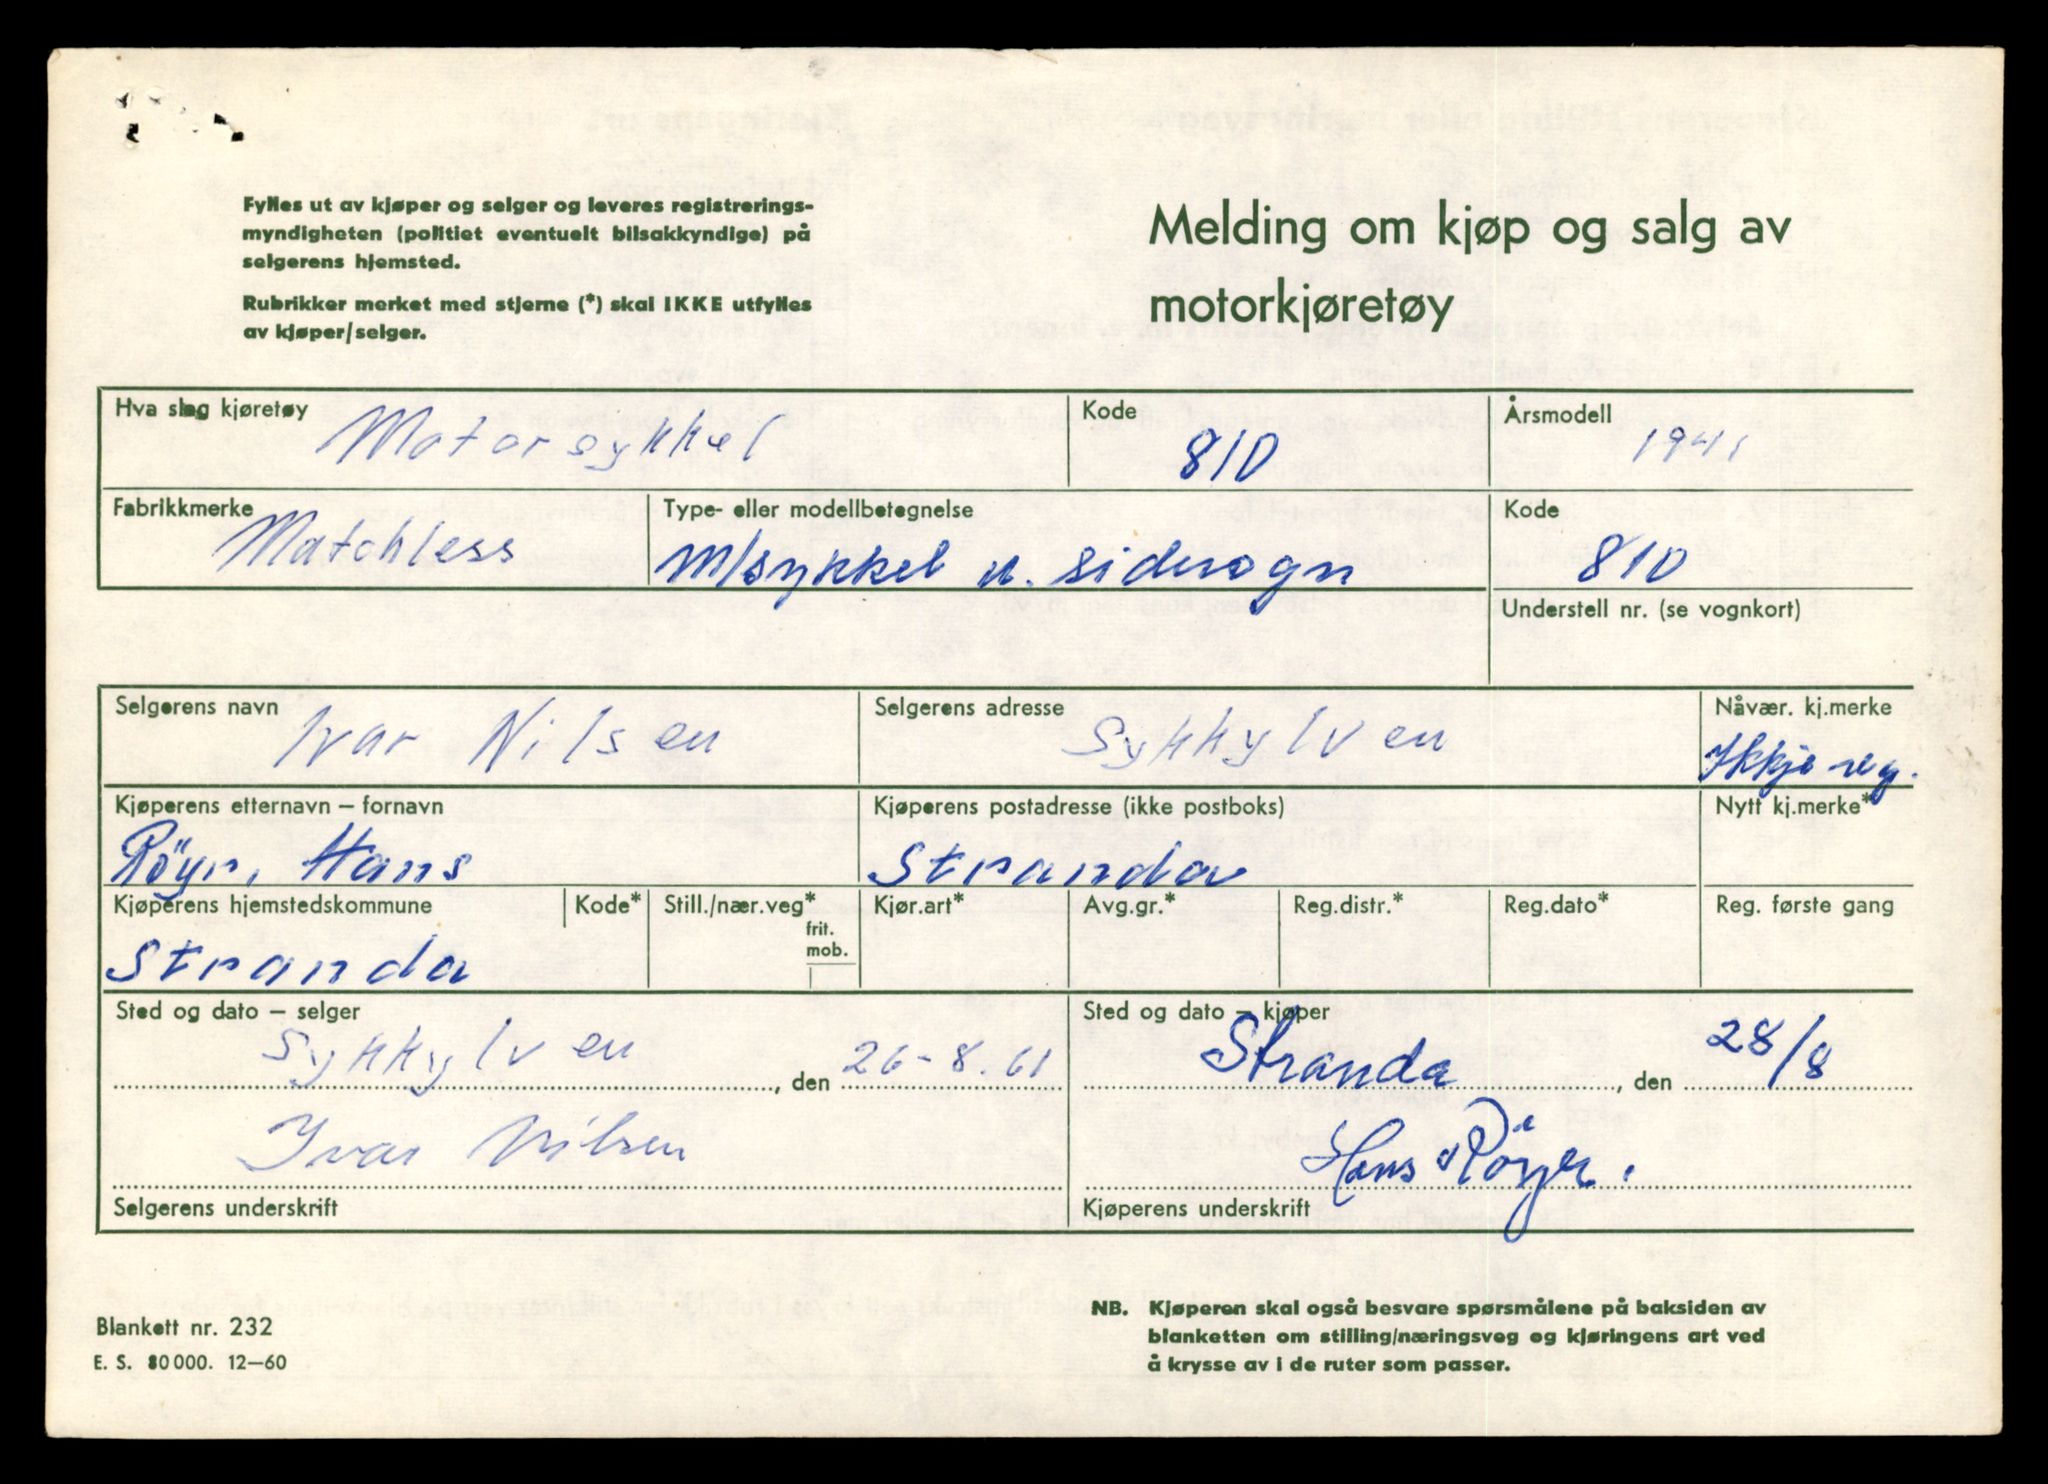 Fylles ut av kjøper og selger og leveres registrerings-
myndigheten (politiet eventuelt bilsakkyndige) på
selgerens hjemsted.
Rubrikker merket med stjerne (*) skal IKKE utfylles
av kjøper/selger.
Melding om kjøp og salg av
motorkjøretøy
Hva slag kjøretøy Kode Årsmodell
Motorsykkel 810 1941
Fabrikkmerke Type- eller modellbetegnelse Kode
Matchless M/sykkel u. sidevogn 810
Understell nr. (se vognkort)
Selgerens navn Selgerens adresse Nåvær. kj.merke
Ivar Nilsen Sykkylven Ikkje reg.
Kjøperens etternavn – fornavn Kjøperens postadresse (ikke postboks) Nytt kj.merke*
Röyr, Hans Stranda
Kjøperens hjemstedskommune Kode* Still./nær.veg* Kjør.art* Avg.gr.* Reg.distr.* Reg.dato* Reg. første gang
frit.
mob.
Stranda
Sted og dato – selger Sted og dato – kjøper
Sykkylven, den 26-8.61 Stranda, den 28/8
Ivar Nilsen Hans Röyr.
Selgerens underskrift Kjøperens underskrift
Blankett nr. 232
E. S. 80000. 12–60
NB. Kjøperen skal også besvare spørsmålene på baksiden av
blanketten om stilling/næringsveg og kjøringens art ved
å krysse av i de ruter som passer.